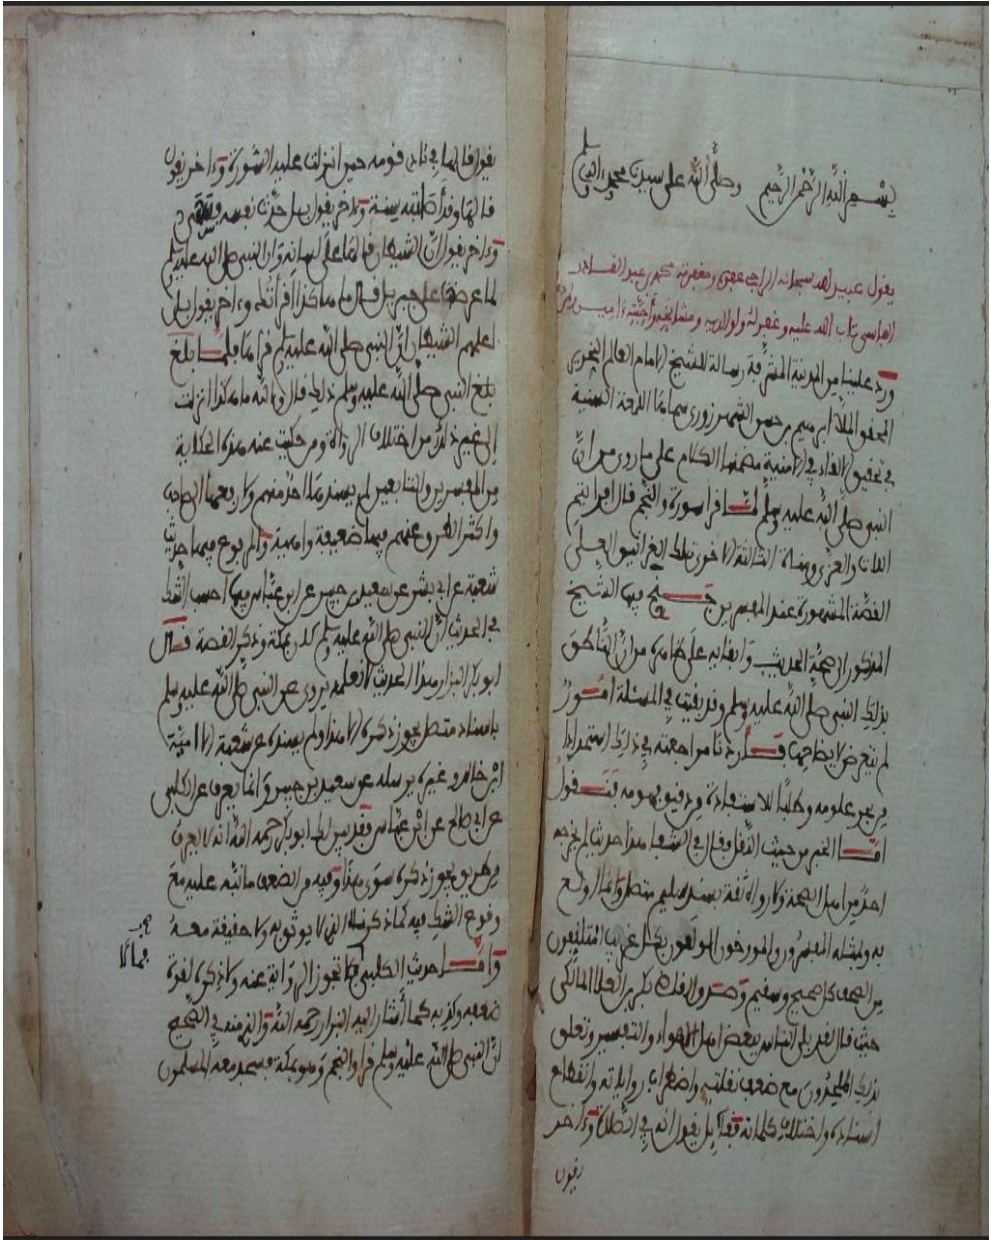 بسم الله الرحمن الرحيم وصلى الله على سيدنا محمد وآله
يقول عبيد الله سبحانه الراجي عفوه ومغفرته محمد بن عبد القادر
الفاسي تاب الله عليه وغفر له ولوالديه ومشايخه وأحبته ءامين
ورد علينا من المدينة المشرفة رسالة للشيخ الامام العالم النحرير
المحقق الملا ابرهيم بن حسن الشهرزوري سماها اللمعة السنية
في تحقيق الالقاء في الامنية مضمنها الكلام على ما روي من ان
النبي صلى الله عليه وسلم لما قرا سورة والنجم قال افرايتم
اللات والعزى ومناة الثالثة الاخرى تلك الغرانيق العلى
القصة المشهورة عند المفسرين جنح فيها الشيخ
المذكور الى صحة الحديث وابقائه على ظاهره من ان الناطق
بذلك النبي صلى الله عليه وسلم وقد بقيت في المسئلة امور
لم يتعرض لايضاحها فاردنا مراجعته في ذلك استمدادا
من بحر علومه وطلبا للاستفادة من دقيق فهومه فنقول
اما الخبر من حيث النقل فقال في الشفا هذا حديث لم يخرجه
احد من اهل الصحة ولا رواه ثقة بسند سليم متصل وانما اولع
به وبمثله المفسرون والمورخون المولعون بكل غريب المتلقفون
من الصحف كل صحيح وسقيم وصدق القاضي بكر بن العلا المالكي
حيث قال لقد بلي الناس ببعض اهل الاهواء والتفسير وتعلق
بذلك الملحدون مع ضعف نقلته واضطراب رواياته وانقطاع
اسناده واختلاف كلماته فقائل يقول انه في الصلاة وءاخر
يقول
يقول قالها في نادي قومه حين انزلت عليه السورة وءاخر يقول
قالها وقد اصابته سنة وءاخر يقول بل حدث نفسه فسهى
وءاخر يقول ان الشيطان قالها على لسانه وان النبي صلى الله عليه وسلم
لما عرضها على جبريل قال ما هاكذا اقرأتك وءاخر يقول بل
اعلمهم الشيطان ان النبي صلى الله عليه وسلم قراها فلما بلغ
بلغ النبي صلى الله عليه وسلم ذلك قال والله ما هكذا انزلت
الى غير ذلك من اختلاف الرواة ومن حكيت عنه هذه الحكاية
من المفسرين والتابعين لم يسندها احد منهم ولا رفعها الى صاحب
واكثر الطرق عنهم فيها ضعيفة واهية والمرفوع فيها حديث
شعبة عن ابي بشر عن سعيد بن جبير عن ابن عباس فيما احسب الشك
في الحديث ان النبي صلى الله عليه وسلم كان بمكة وذكر القصة قال
ابو بكر البزار هذا الحديث لا نعلمه يروى عن النبي صلى الله عليه وسلم
باسناد متصل يجوز ذكره الا هذا ولم يسنده عن شعبة الا امية
ابن خالد وغيره يرسله عن سعيد بن جبير وانما يعرف عن الكلبي
عن ابي صالح عن ابن عباس فقد بين لك ابو بكر رحمه الله انه لا يعرف
من طريق يجوز ذكره سوى هذا وفيه من الضعف ما نبه عليه مع
وقوع الشك فيه كما ذكرناه الذي لا يوثق به ولا حقيقة معه
واما حديث الكلبي فما تجوز الرواية عنه ولا ذكره لقوة
ضعفه وكذبه كما أشار اليه البزار رحمه الله والذي منه في الصحيح
ان النبي صلى الله عليه وسلم قرا والنجم وهو بمكة فسجد معه المسلمون